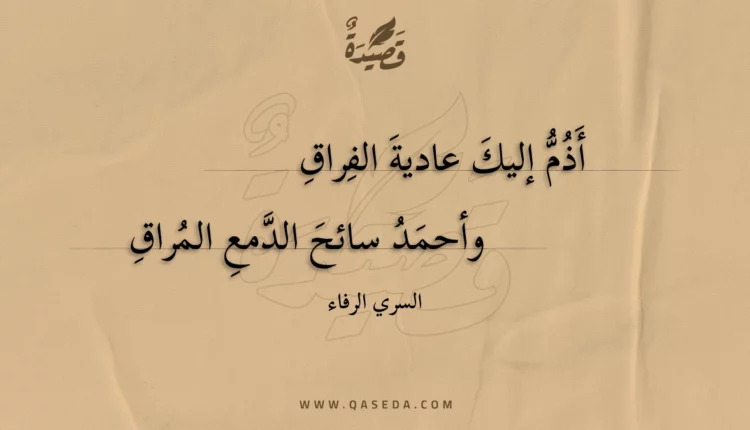 قَصِيدَةٌ
أَذُمُّ إليكَ عاديةَ الفِراقِ
وأحمَدُ سائحَ الدَّمعِ المُراقِ
السري الرفاء
WWW.QASEDA.COM